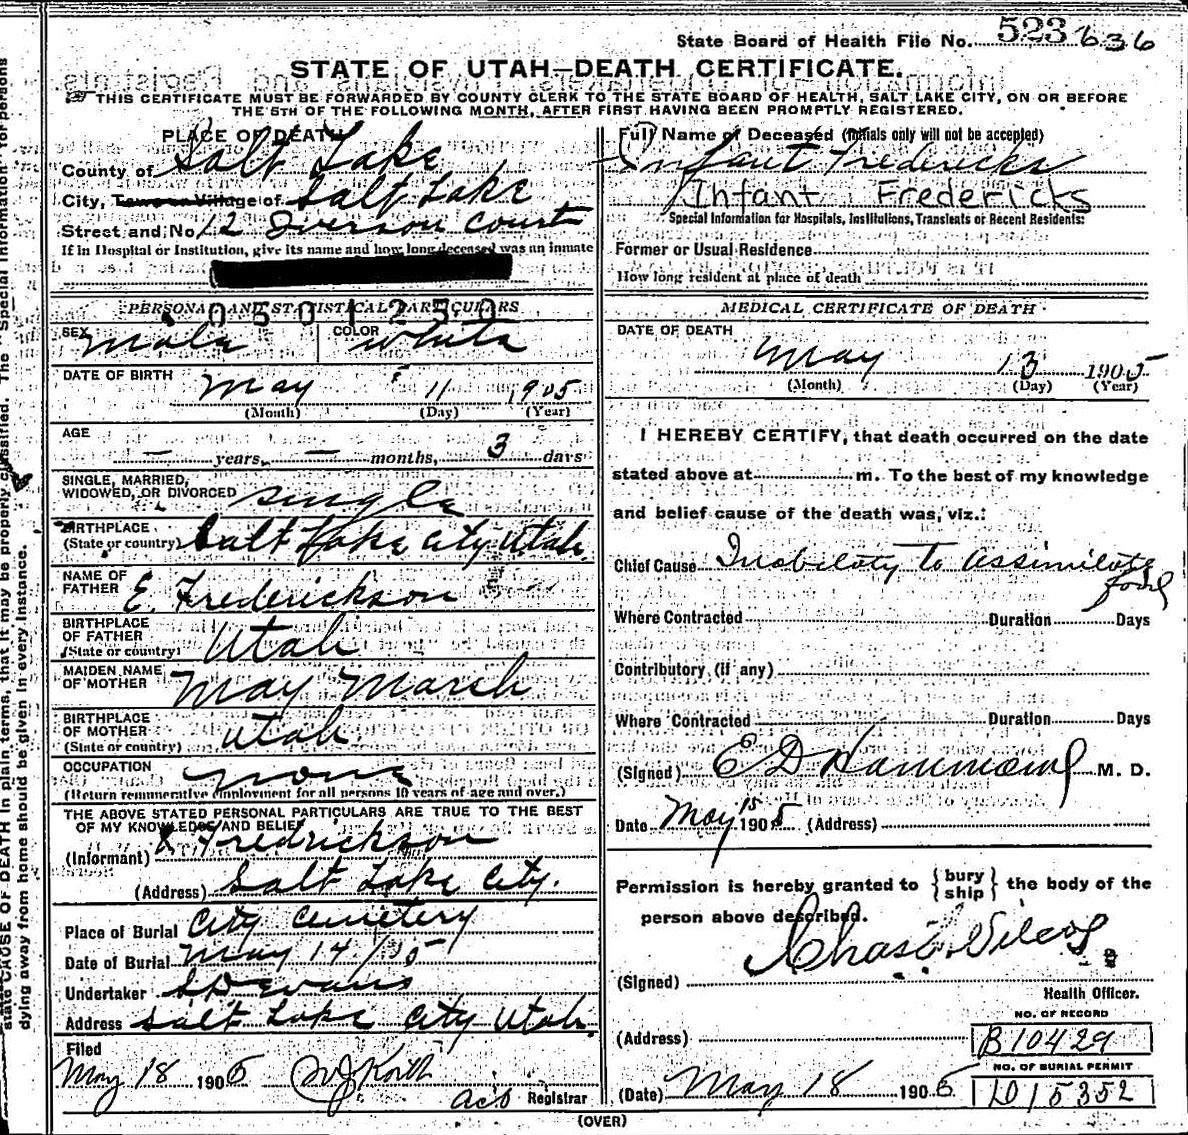 State Board of Health File No. 523 636
STATE OF UTAH—DEATH CERTIFICATE.
THIS CERTIFICATE MUST BE FORWARDED BY COUNTY CLERK TO THE STATE BOARD OF HEALTH, SALT LAKE CITY, ON OR BEFORE
THE 5TH OF THE FOLLOWING MONTH, AFTER FIRST HAVING BEEN PROMPTLY REGISTERED.
state CAUSE OF DEATH in plain terms, that it may be properly classified. The "Special Information" for persons
dying away from home should be given in every instance.
PLACE OF DEATH
County of Salt Lake
City, Town or Village of Salt Lake
Street and No. 12 Iverson Court
If in Hospital or Institution, give its name and how long deceased was an inmate
PERSONAL AND STATISTICAL PARTICULARS
0501250
SEX Male COLOR White
DATE OF BIRTH May 11 1905
(Month) (Day) (Year)
AGE — years, — months, 3 days
SINGLE, MARRIED,
WIDOWED, OR DIVORCED single
BIRTHPLACE
(State or country) Salt Lake City Utah.
NAME OF
FATHER E. Frederickson
BIRTHPLACE
OF FATHER
(State or country) Utah
MAIDEN NAME
OF MOTHER May March
BIRTHPLACE
OF MOTHER
(State or country) Utah
OCCUPATION none
(Return remunerative employment for all persons 10 years of age and over.)
THE ABOVE STATED PERSONAL PARTICULARS ARE TRUE TO THE BEST
OF MY KNOWLEDGE AND BELIEF
(Informant) X Fredrickson
(Address) Salt Lake City.
Place of Burial City Cemetery
Date of Burial May 14/05
Undertaker S D Evans
Address Salt Lake City Utah.
Filed
May 18 1905
Registrar
Full Name of Deceased (Initials only will not be accepted)
Infant Fredericks
Infant Fredericks
Special Information for Hospitals, Institutions, Transients or Recent Residents:
Former or Usual Residence
How long resident at place of death
MEDICAL CERTIFICATE OF DEATH
DATE OF DEATH
May 13 1905
(Month) (Day) (Year)
I HEREBY CERTIFY, that death occurred on the date
stated above at m. To the best of my knowledge
and belief cause of the death was, viz.:
Chief Cause Inability to assimilate
food
Where Contracted Duration Days
Contributory (if any)
Where Contracted Duration Days
(Signed) E D Hammond M. D.
Date May 15 1905 (Address)
Permission is hereby granted to {bury
ship} the body of the
person above described.
(Signed) Chas Wilcox
Health Officer.
NO. OF RECORD
(Address) B10429
NO. OF BURIAL PERMIT
(Date) May 18 1905 1015352
(OVER)